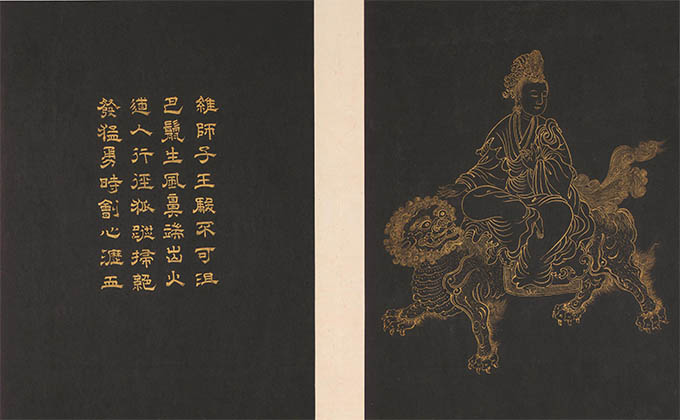 維師子王毅不可沮
巴鬣生風鼻端出火
道人行徑狐蹤掃絕
發猛勇時心瀝五